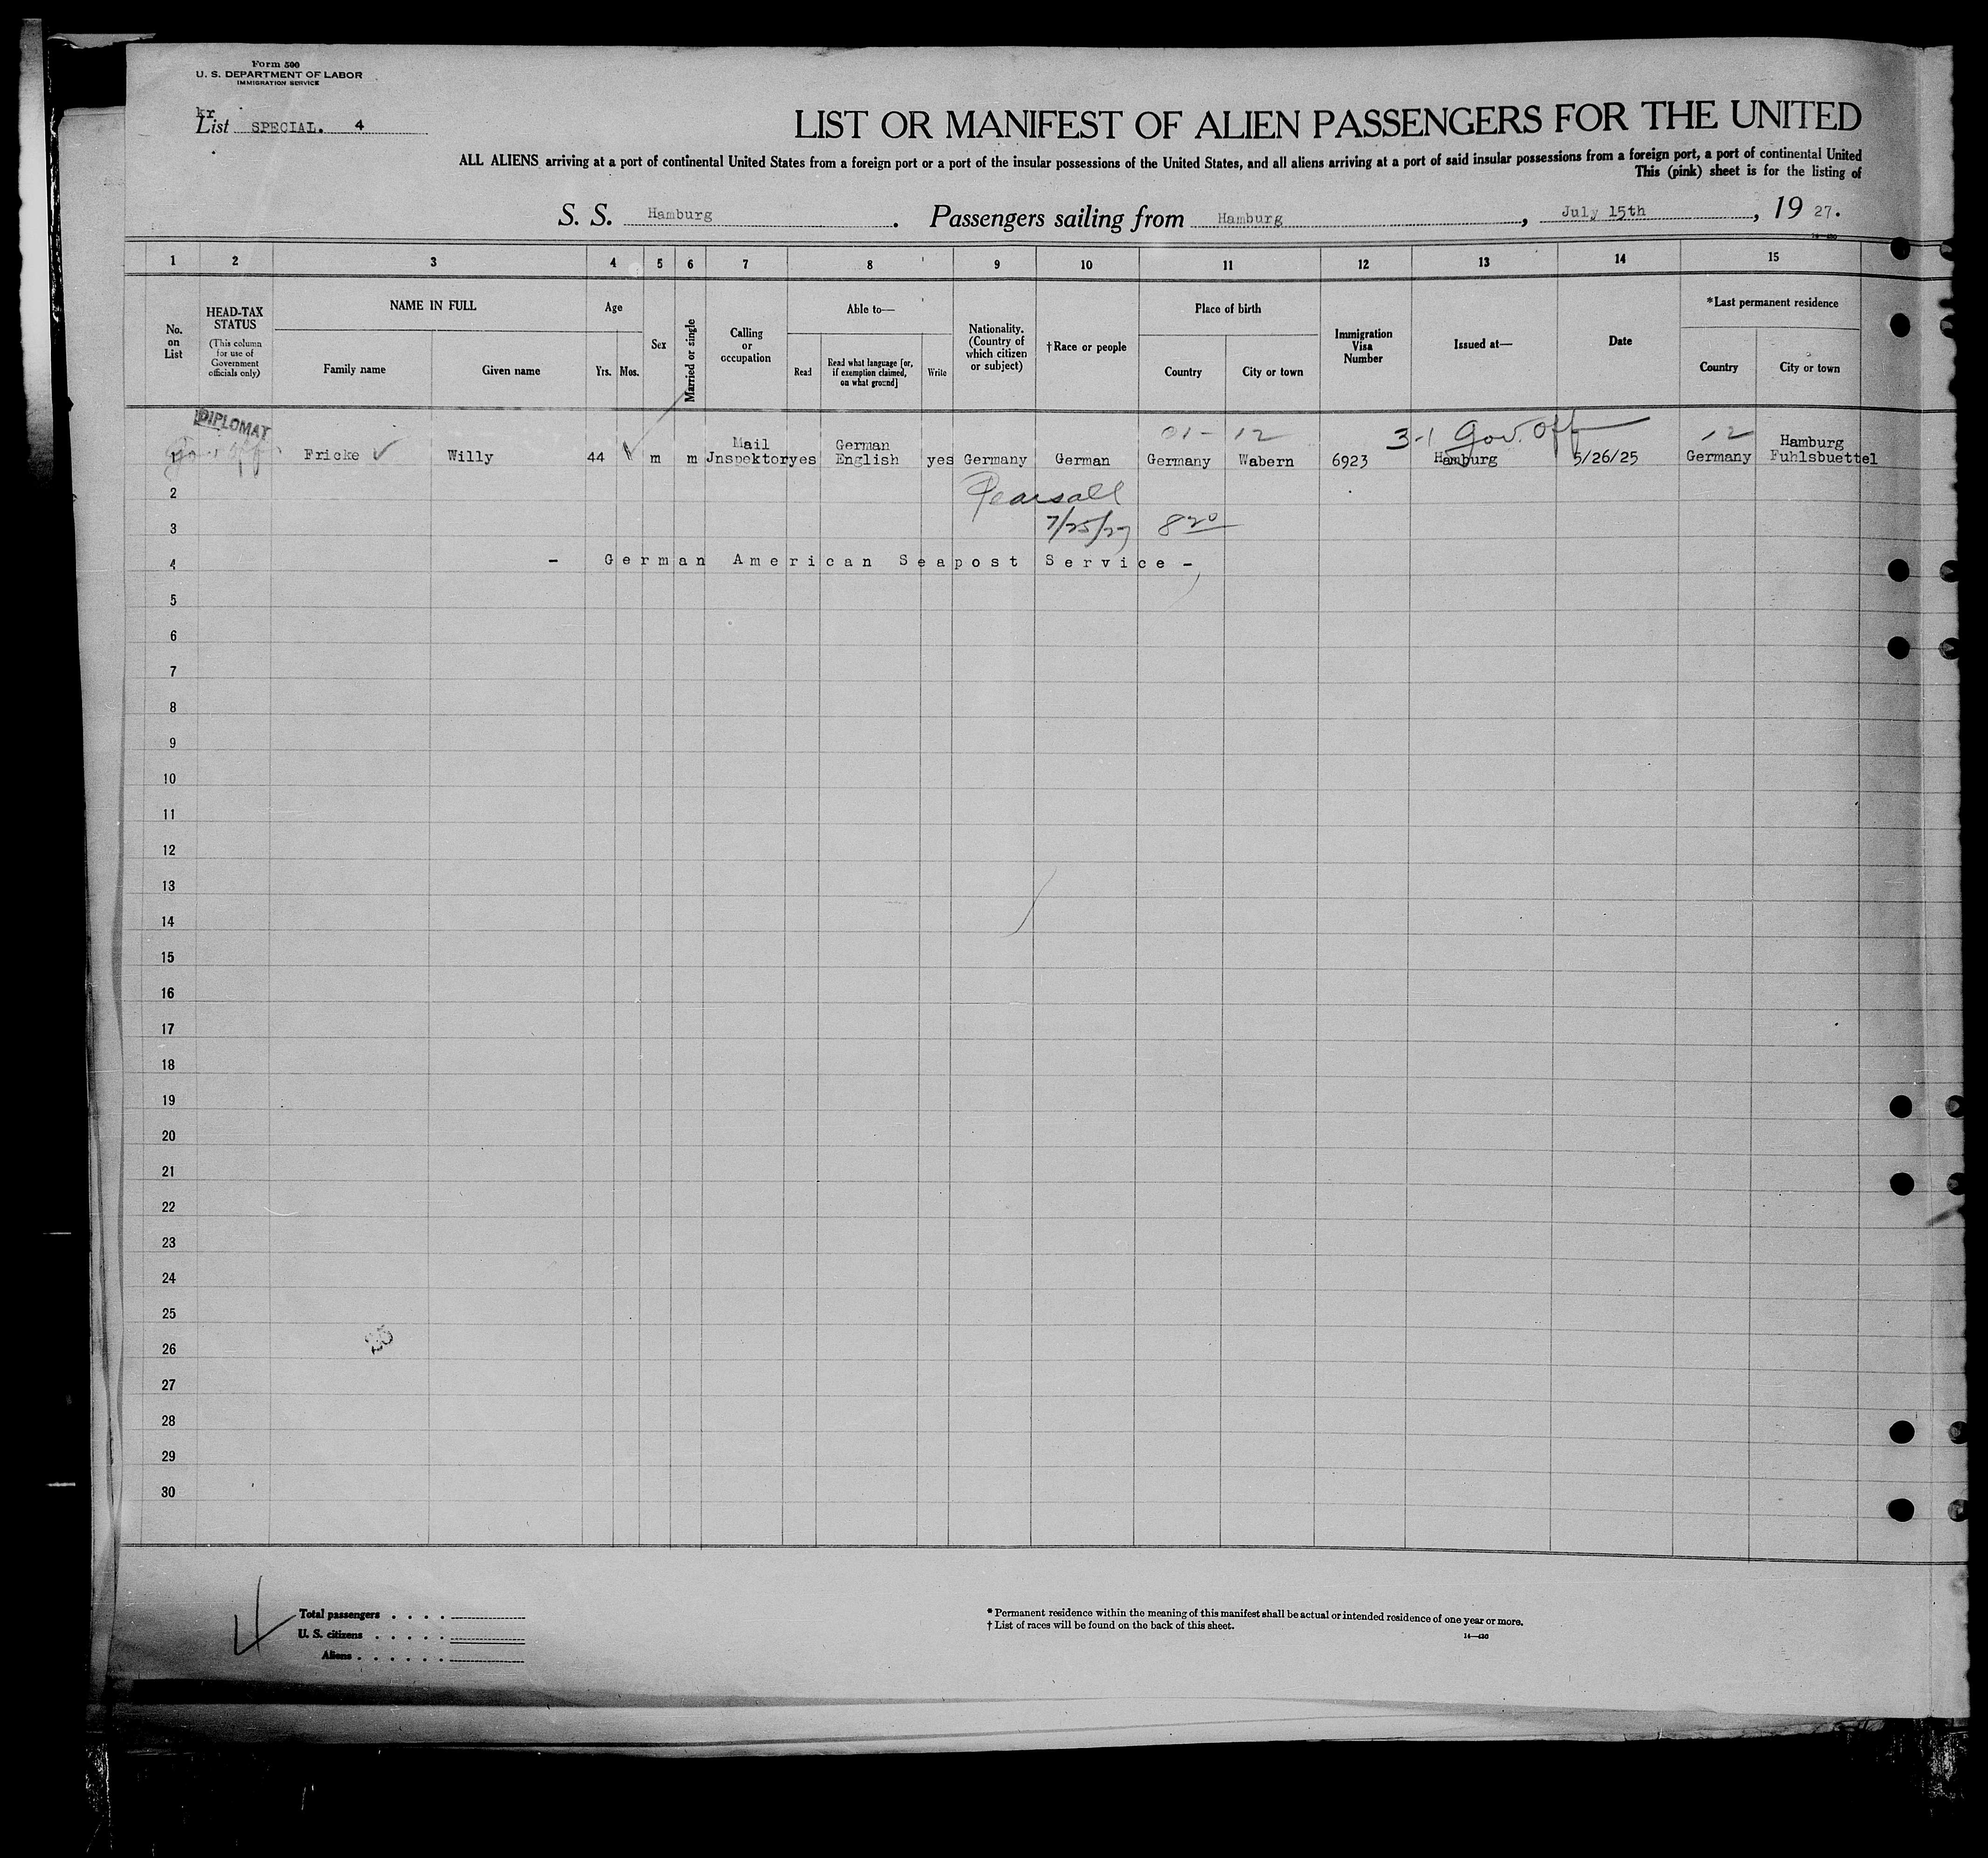 Form 500
U. S. DEPARTMENT OF LABOR
IMMIGRATION SERVICE
kr
List SPECIAL. 4
LIST OR MANIFEST OF ALIEN PASSENGERS FOR THE UNITED
ALL ALIENS arriving at a port of continental United States from a foreign port or a port of the insular possessions of the United States, and all aliens arriving at a port of said insular possessions from a foreign port, a port of continental United
This (pink) sheet is for the listing of
S. S. Hamburg. Passengers sailing from Hamburg, July 15th, 19 27.
1 2 3 4 5 6 7 8 9 10 11 12 13 14 15
No. on List
HEAD-TAX STATUS
(This column for use of Government officials only)
NAME IN FULL
Family name Given name
Age
Yrs. Mos.
Sex
Married or single
Calling or occupation
Able to—
Read
Read what language [or, if exemption claimed, on what ground]
Write
Nationality. (Country of which citizen or subject)
†Race or people
Place of birth
Country City or town
Immigration Visa Number
Issued at—
Date
*Last permanent residence
Country City or town
DIPLOMAT
Gov. Off.
01- 12 3-1 Gov. Off 12
Fricke Willy 44 m m Mail Jnspektor yes German English yes Germany German Germany Wabern 6923 Hamburg 5/26/25 Germany Hamburg Fuhlsbuettel
2 Pearsall
3 7/25/27 820
4 - German American Seapost Service -
5
6
7
8
9
10
11
12
13
14
15
16
17
18
19
20
21
22
23
24
25
26
27
28
29
30
Total passengers
U. S. citizens
Aliens
* Permanent residence within the meaning of this manifest shall be actual or intended residence of one year or more.
† List of races will be found on the back of this sheet.
14—430